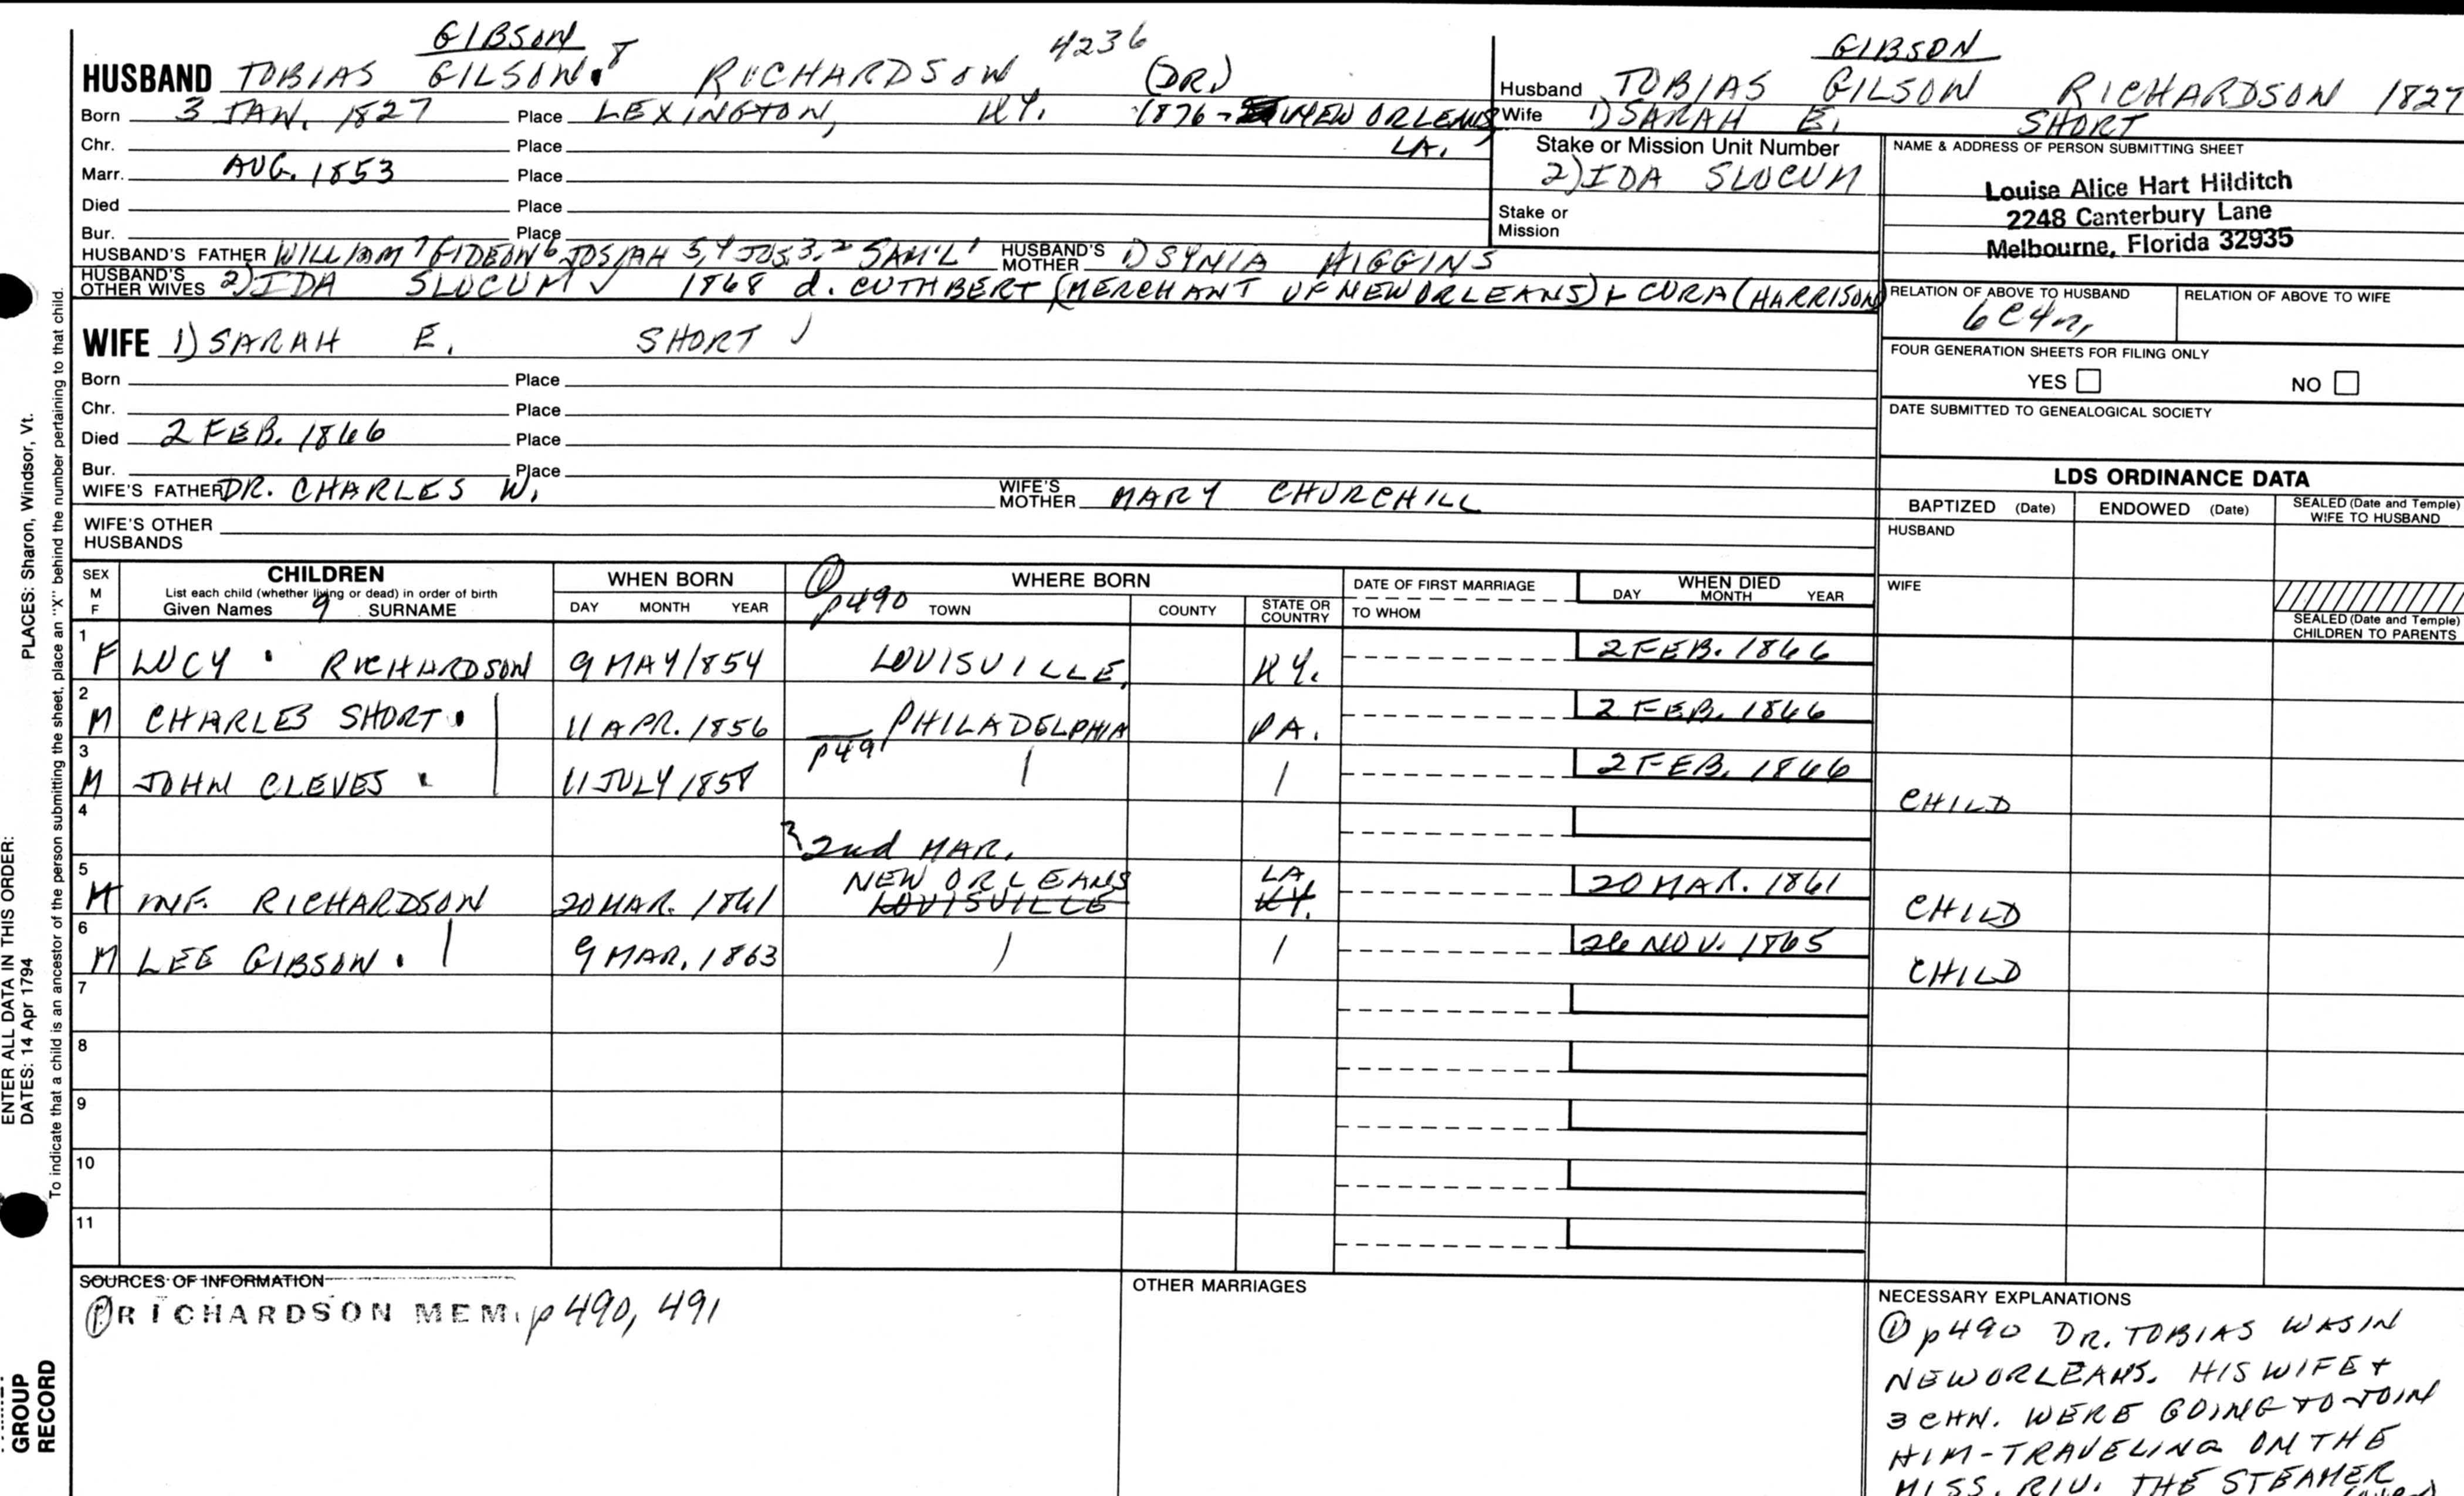 GIBSON
HUSBAND TOBIAS GILSON 8 RICHARDSON 4236 (DR.)
Born 3 JAN. 1827 Place LEXINGTON, KY. 1876- NEW ORLEANS, LA.
Chr. Place
Marr. AUG. 1853 Place
Died Place
Bur. Place
HUSBAND'S FATHER WILLIAM 7 GIDEON 6 JOSIAH 5,4 JOS 3,2 SAM'L 1 HUSBAND'S MOTHER 1) SYNIA HIGGINS
HUSBAND'S OTHER WIVES 2) IDA SLOCUM ✓ 1868 d. CUTHBERT (MERCHANT OF NEW ORLEANS) + CORA (HARRISON)
WIFE 1) SARAH E. SHORT
Born Place
Chr. Place
Died 2 FEB. 1866 Place
Bur. Place
WIFE'S FATHER DR. CHARLES W. WIFE'S MOTHER MARY CHURCHILL
WIFE'S OTHER HUSBANDS
GIBSON
Husband TOBIAS GILSON RICHARDSON 1827
Wife 1) SARAH E. SHORT
Stake or Mission Unit Number
2) IDA SLOCUM
Stake or Mission
NAME & ADDRESS OF PERSON SUBMITTING SHEET
Louise Alice Hart Hilditch
2248 Canterbury Lane
Melbourne, Florida 32935
RELATION OF ABOVE TO HUSBAND RELATION OF ABOVE TO WIFE
6C4r,
FOUR GENERATION SHEETS FOR FILING ONLY
YES NO
DATE SUBMITTED TO GENEALOGICAL SOCIETY
LDS ORDINANCE DATA
BAPTIZED (Date) ENDOWED (Date) SEALED (Date and Temple) WIFE TO HUSBAND
HUSBAND
WIFE
SEALED (Date and Temple) CHILDREN TO PARENTS
SEX M F
CHILDREN
List each child (whether living or dead) in order of birth
Given Names 9 SURNAME
WHEN BORN
DAY MONTH YEAR
① p490
WHERE BORN
TOWN COUNTY STATE OR COUNTRY
DATE OF FIRST MARRIAGE
TO WHOM
WHEN DIED
DAY MONTH YEAR
1 F LUCY RICHARDSON 9 MAY 1854 LOUISVILLE, KY. 2 FEB. 1866
2 M CHARLES SHORT 11 APR. 1856 PHILADELPHIA PA. 2 FEB. 1866
p491
3 M JOHN CLEVES 11 JULY 1858 2 FEB. 1866 CHILD
4 2nd MAR.
5 M INF. RICHARDSON 20 MAR. 1861 NEW ORLEANS LOUISVILLE LA. KY. 20 MAR. 1861 CHILD
6 M LEE GIBSON 9 MAR. 1863 26 NOV. 1865 CHILD
7
8
9
10
11
SOURCES OF INFORMATION
① RICHARDSON MEM. p490, 491
OTHER MARRIAGES
NECESSARY EXPLANATIONS
① p490 DR. TOBIAS WAS IN
NEW ORLEANS. HIS WIFE +
3 CHN. WERE GOING TO JOIN
HIM - TRAVELING ON THE
MISS. RIV. THE STEAMER
PLACES: Sharon, Windsor, Vt.
ENTER ALL DATA IN THIS ORDER:
DATES: 14 Apr 1794
To indicate that a child is an ancestor of the person submitting the sheet, place an "X" behind the number pertaining to that child.
GROUP
RECORD